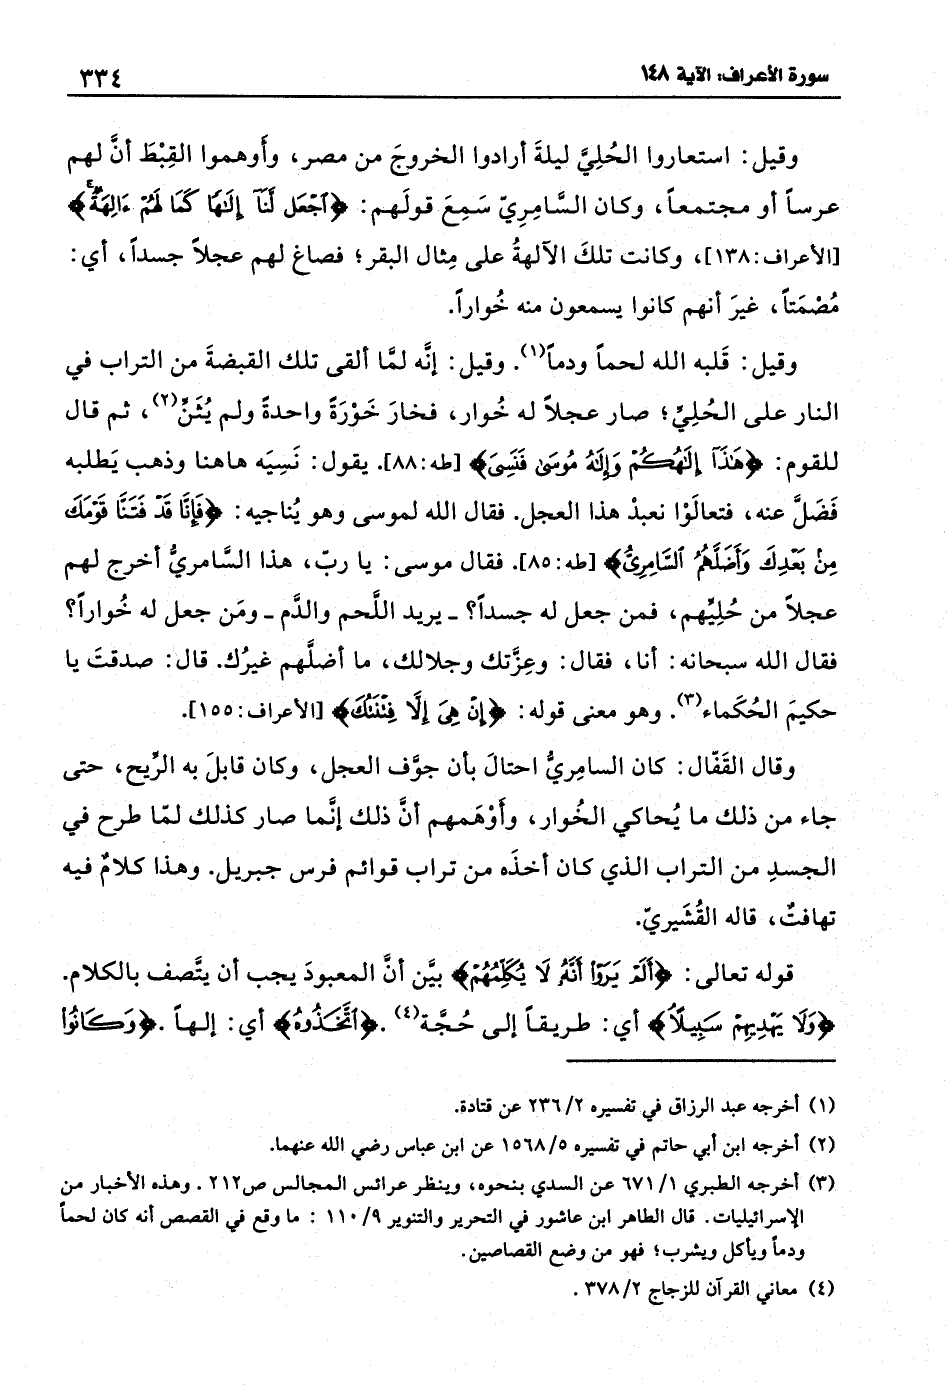 سورة الأعراف: الآية ١٤٨
٣٣٤
وقيل: استعاروا الحُلِيَّ ليلةَ أرادوا الخروجَ من مصر، وأوهموا القِبْطَ أنَّ لهم
عرساً أو مجتمعاً، وكان السَّامِرِيّ سَمِعَ قولَهم: ﴿ٱجْعَل لَّنَآ إِلَٰهًا كَمَا لَهُمْ ءَالِهَةٌ﴾
[الأعراف:١٣٨]، وكانت تلكَ الآلهةُ على مِثال البقر؛ فصاغ لهم عجلاً جسداً، أي:
مُصْمَتاً، غيرَ أنهم كانوا يسمعون منه خُواراً.
وقيل: قَلبه الله لحماً ودماً(١). وقيل: إنَّه لمَّا ألقى تلك القبضةَ من التراب في
النار على الحُلِيِّ؛ صار عجلاً له خُوار، فخارَ خَوْرَةً واحدةً ولم يُثَنِّ(٢)، ثم قال
للقوم: ﴿هَٰذَآ إِلَٰهُكُمْ وَإِلَٰهُ مُوسَىٰ فَنَسِىَ﴾ [طه:٨٨]. يقول: نَسِيَه هاهنا وذهب يَطلبه
فَضَلَّ عنه، فتعالَوْا نعبدْ هذا العجل. فقال الله لموسى وهو يُناجيه: ﴿فَإِنَّا قَدْ فَتَنَّا قَوْمَكَ
مِنۢ بَعْدِكَ وَأَضَلَّهُمُ ٱلسَّامِرِىُّ﴾ [طه:٨٥]. فقال موسى: يا ربّ، هذا السَّامريُّ أخرج لهم
عجلاً من حُلِيِّهم، فمن جعل له جسداً؟ ـ يريد اللَّحم والدَّم ـ ومَن جعل له خُواراً؟
فقال الله سبحانه: أنا، فقال: وعِزَّتك وجلالك، ما أضلَّهم غيرُك. قال: صدقتَ يا
حكيمَ الحُكَماء(٣). وهو معنى قوله: ﴿إِنْ هِىَ إِلَّا فِتْنَتُكَ﴾ [الأعراف:١٥٥].
وقال القَفّال: كان السامِريُّ احتالَ بأن جوَّف العجل، وكان قابلَ به الرِّيح، حتى
جاء من ذلك ما يُحاكي الخُوار، وأوْهَمهم أنَّ ذلك إنَّما صار كذلك لمّا طرح في
الجسدِ من التراب الذي كان أخذَه من تراب قوائم فرس جبريل. وهذا كلامٌ فيه
تهافتٌ، قاله القُشَيريّ.
قوله تعالى: ﴿أَلَمْ يَرَوْا۟ أَنَّهُۥ لَا يُكَلِّمُهُمْ﴾ بيَّن أنَّ المعبودَ يجب أن يتَّصف بالكلام.
﴿وَلَا يَهْدِيهِمْ سَبِيلًا﴾ أي: طريقاً إلى حُجَّة(٤). ﴿ٱتَّخَذُوهُ﴾ أي: إلهاً. ﴿وَكَانُوا۟
(١) أخرجه عبد الرزاق في تفسيره ٢٣٦/٢ عن قتادة.
(٢) أخرجه ابن أبي حاتم في تفسيره ١٥٦٨/٥ عن ابن عباس رضي الله عنهما.
(٣) أخرجه الطبري ٦٧١/١ عن السدي بنحوه، وينظر عرائس المجالس ص٢١٢. وهذه الأخبار من
الإسرائيليات. قال الطاهر ابن عاشور في التحرير والتنوير ١١٠/٩ : ما وقع في القصص أنه كان لحماً
ودماً ويأكل ويشرب؛ فهو من وضع القصاصين.
(٤) معاني القرآن للزجاج ٣٧٨/٢ .